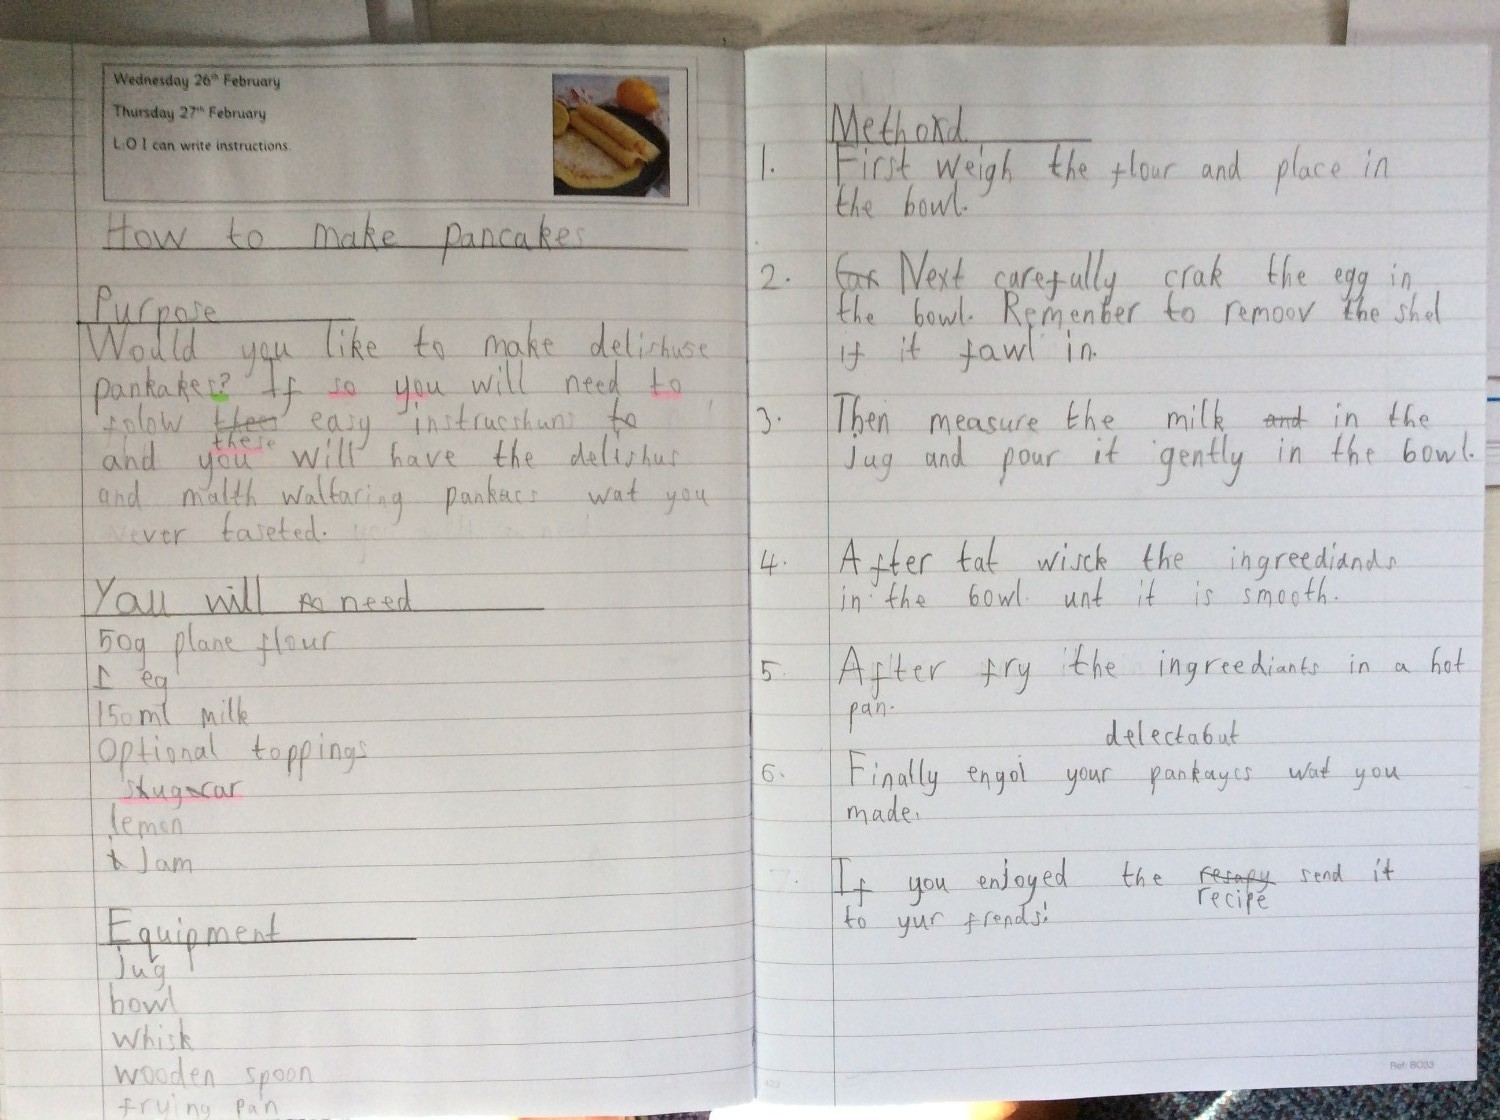 Wednesday 26th February
Thursday 27th February
L.O I can write instructions.
How to make pancakes
Purpose
Would you like to make delishuse
pankakes? If so you will need to
folow thees easy instrucshuns to
these
and you will have the delishus
and malth waltaring pankacs wat you
never taseted.
You will need
50g plane flour
1 eg
150ml milk
Optional toppings
lemon
Jam
Equipment
Jug
bowl
whisk
wooden spoon
frying pan
Methord
1. First weigh the flour and place in
the bowl.
2. Car Next carefully crak the egg in
the bowl. Remember to remoov the shel
if it fawl in.
3. Then measure the milk and in the
Jug and pour it gently in the bowl.
4. After tat wisck the ingreediands
in the bowl unt it is smooth.
5. After fry the ingreediants in a hot
pan.
delectabut
6. Finally engoi your pankaycs wat you
made.
7. If you enjoyed the resapy send it
recipe
to yur frends!
Ref: BO33